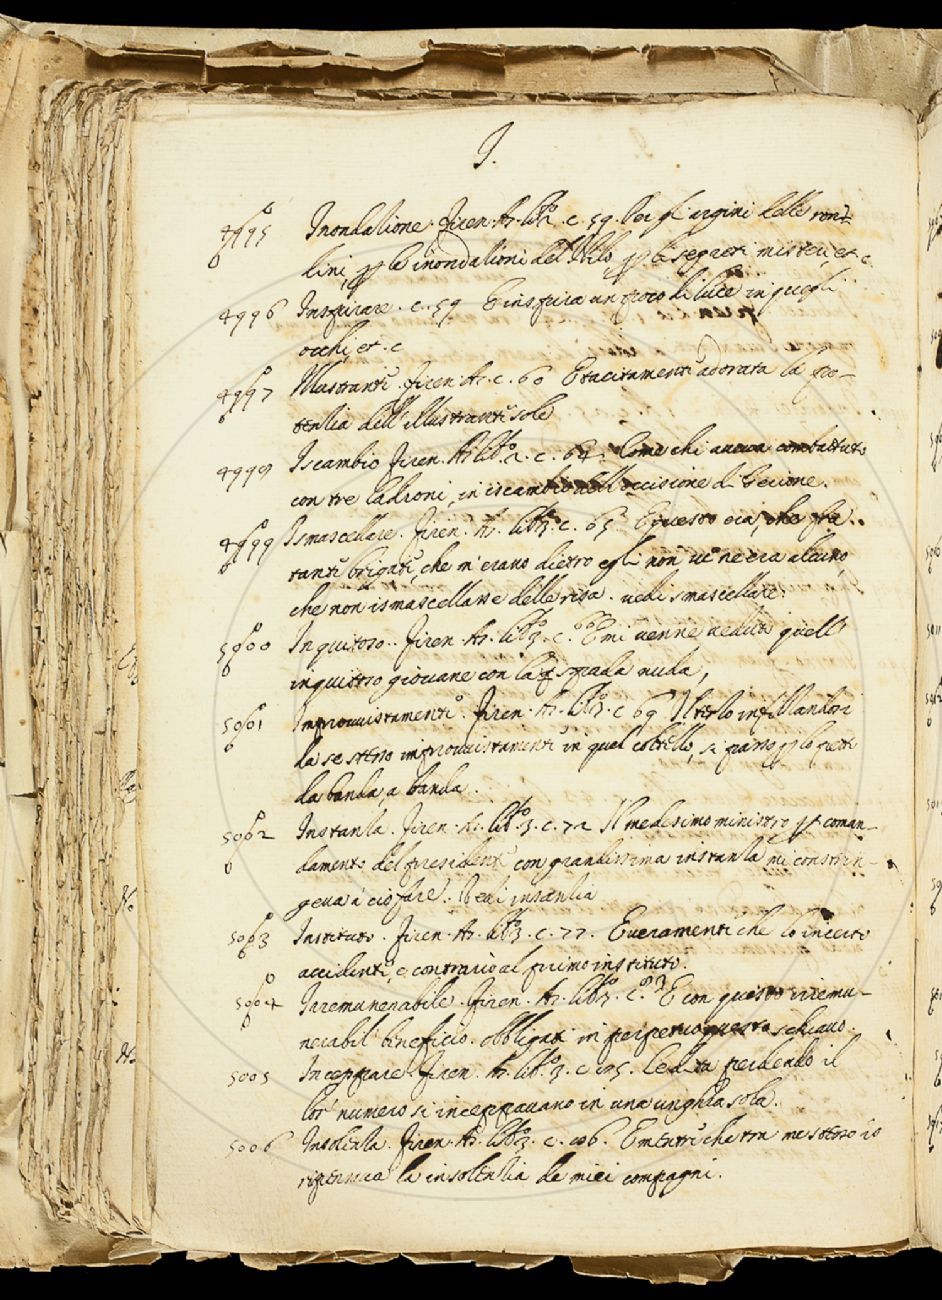 I.
4995 Inondazione. Firen. As. lib. 2. c. 59. Per gl'argini delle ron-
dini, per le inondazioni del Nilo, per li segreti misteri, et c
4996 Inspirare. c. 59 E inspira un poco di luce in quegli
occhi, et. c
4997 Illustrante. Firen. As. c. 60 E tacitamente adorata la po-
tenzia dell'illustrante sole
4998 Iscambio Firen. As. lib. 2. c. 64. Come chi aveva combattuto
con tre ladroni, in iscambio dell'occisione di Gerione.
4999 Ismascellare. Firen. As. lib. 3. c. 65 E questo era, che fra
tante brigate, che m'erano dietro egli non ve ne era alcuno,
che non ismascellasse delle risa. vedi smascellare.
5000 Inquitoso.. Firen. As. lib. 3. c. 66 E mi venne veduto quell'
inquitoso giovane con la spada nuda,
5001 Improvvistamente. Firen. As. lib. 3. c 69 infilzandosi
da se stesso improvvistamente in quel coltello, si passò per lo petto
da banda, a banda.
5002 Instanza. Firen. As. lib. 3. c. 72 Il medesimo ministro per coman-
damento del presidente con grandissima instanza mi constrin-
geva a ciò fare. Vedi instanzia
5003 Instituto. Firen. As. lib. 3. c. 77. E veramente che lo incerto
accidente, e contrario al primo instituto.
5004 Inremunerabile. Firen. As. lib. 3. c. E con questo irremu-
nerabil beneficio. obbligati in perpetuo questo schiavo.
5005 Inceppare. Firen. As. lib. 3. c. perdendo il
lor numero si inceppavano in una unghia sola.
5006 Insolenza. Firen. As. lib. 3. c. E mentre che tra me stesso io
ripeteva la insolenzia de miei compagni.